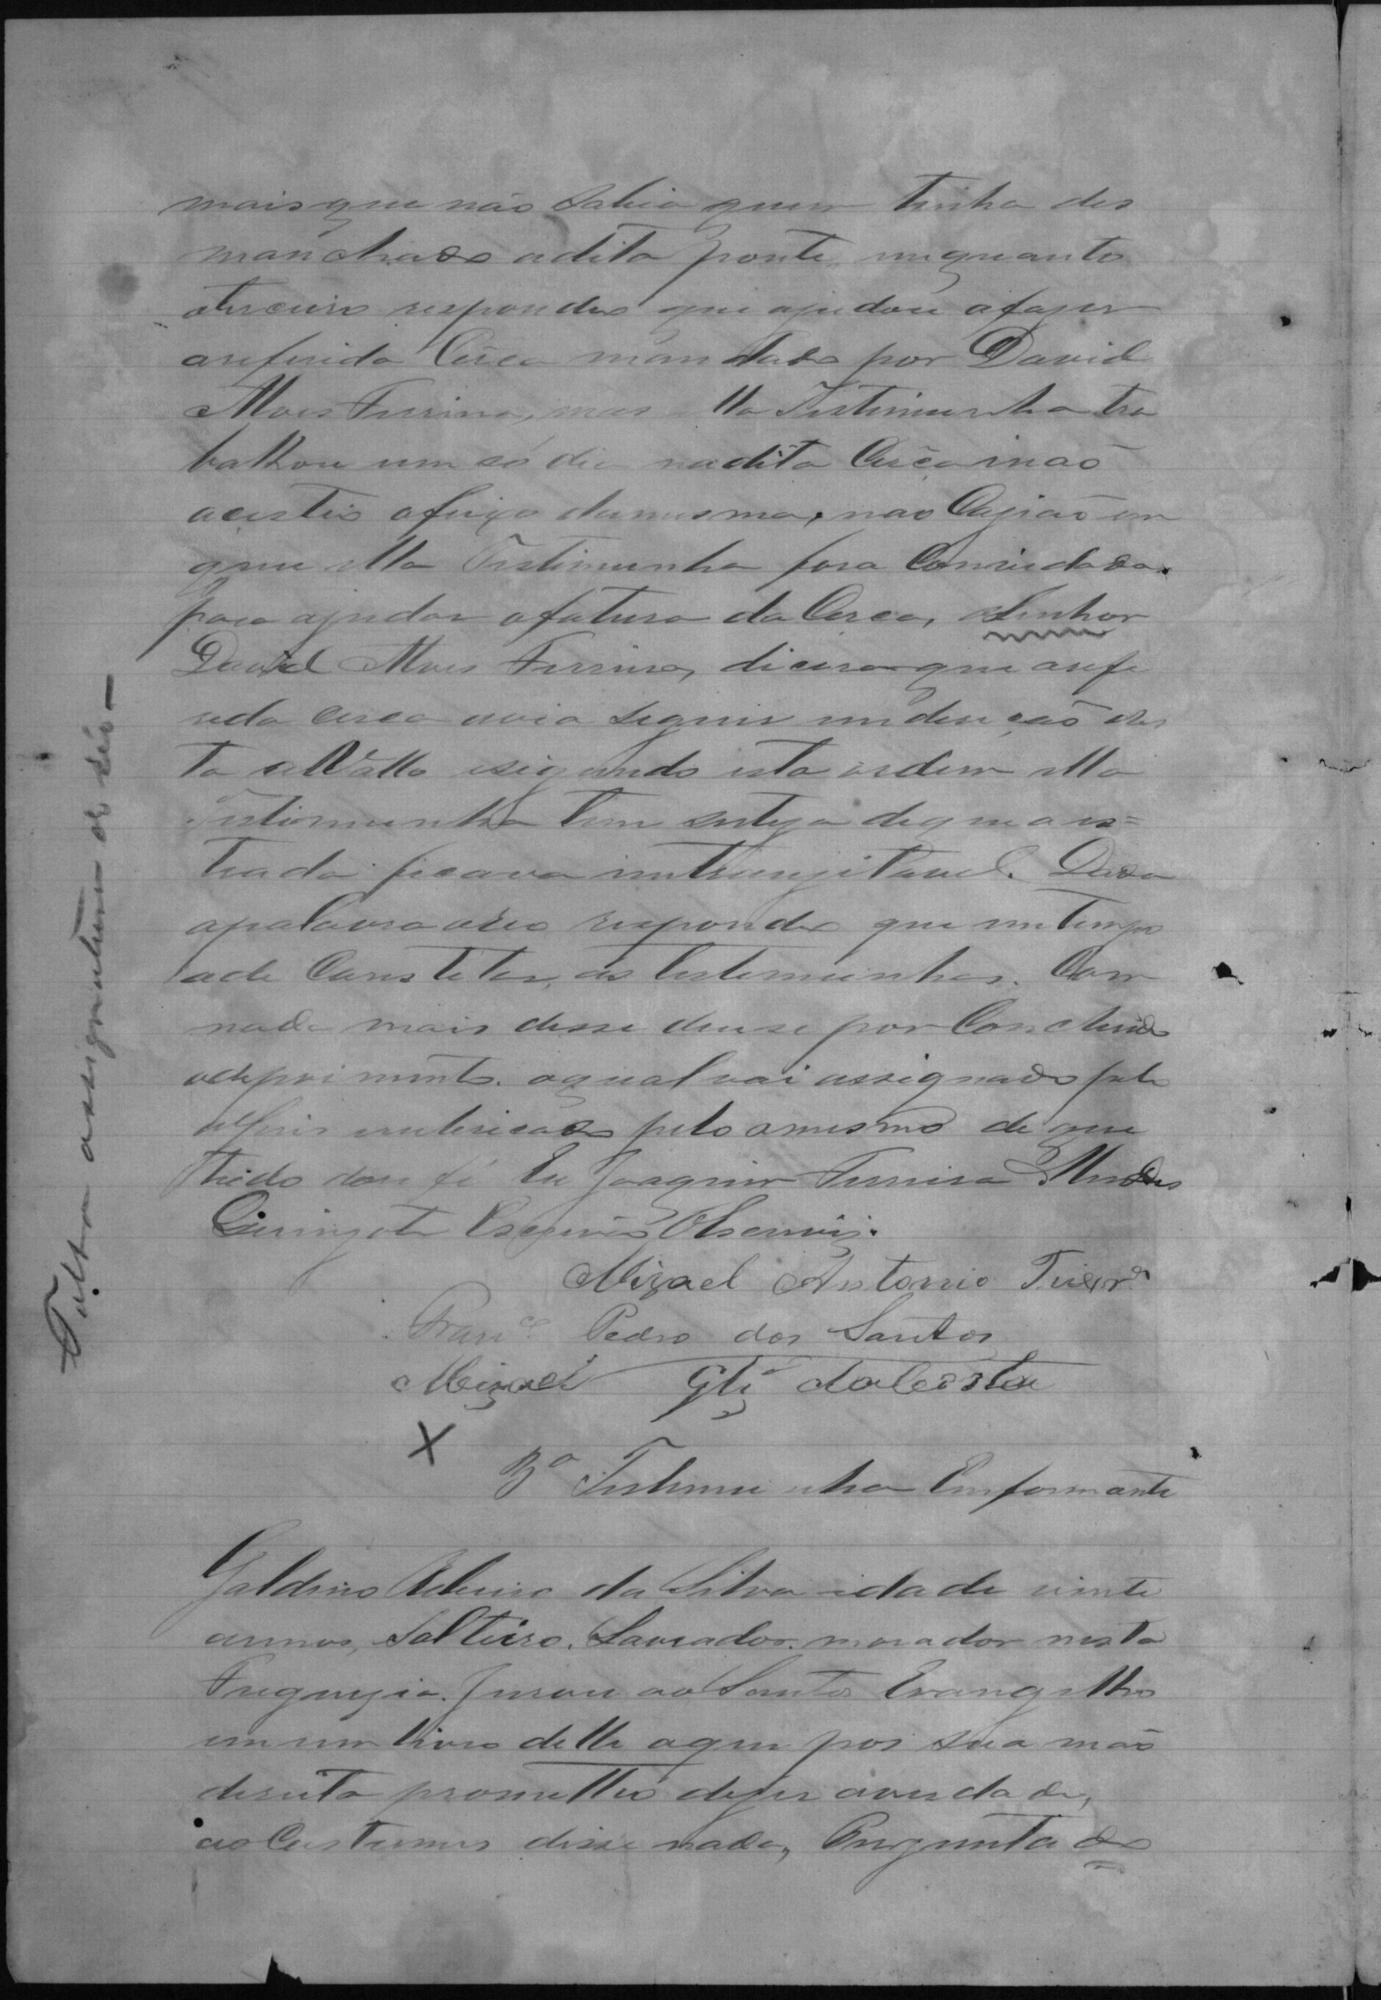 mais que não sabia quem tinha des
manchado adita ponte, emquanto
oterceiro respondeo que ajudou afazer
areferida Cêrca mandada por David
Alves Ferreira, mas ella Testimunha tra
balhou um só dia nadita Cêrca não
acistio damesma, na ocazião em
que ella Testimunha fora Convidada
para ajudar afatura da Cerca, oSenhor
David Alves Ferreira, dicera que arefe
rida cerca avia seguir
ta esta ordem ella
Testimunha tem serteza de que a es=
trada ficava intranzitavel. Dada
apalavra aoreo respondeo que emtempo
ade Constetar as testemunhas. Com
nada mais disse deuse por Concluido
odepoimento. oqual vai assignado pelo
pelo mesmo de que
tudo dou fé Eu Joaquim Ferreira Mendes
Escrivão Oescrevi.
Mizael Antonio Teixr.ª
Fran.co Pedro dos Santos
Mizael Glz' daCosta
X
3ª Testimunha Emformante
Galdino Ribeiro da Silva idade vinte
annos, Solteiro, Lavrador, morador nesta
Freguezia. Jurou ao Santos Evangelhos
em um livro delle aque pos sua mão
dereita prometteo dizer averdade,
aoCustumes disse nada, Perguntado
Falta assignatura do réo —